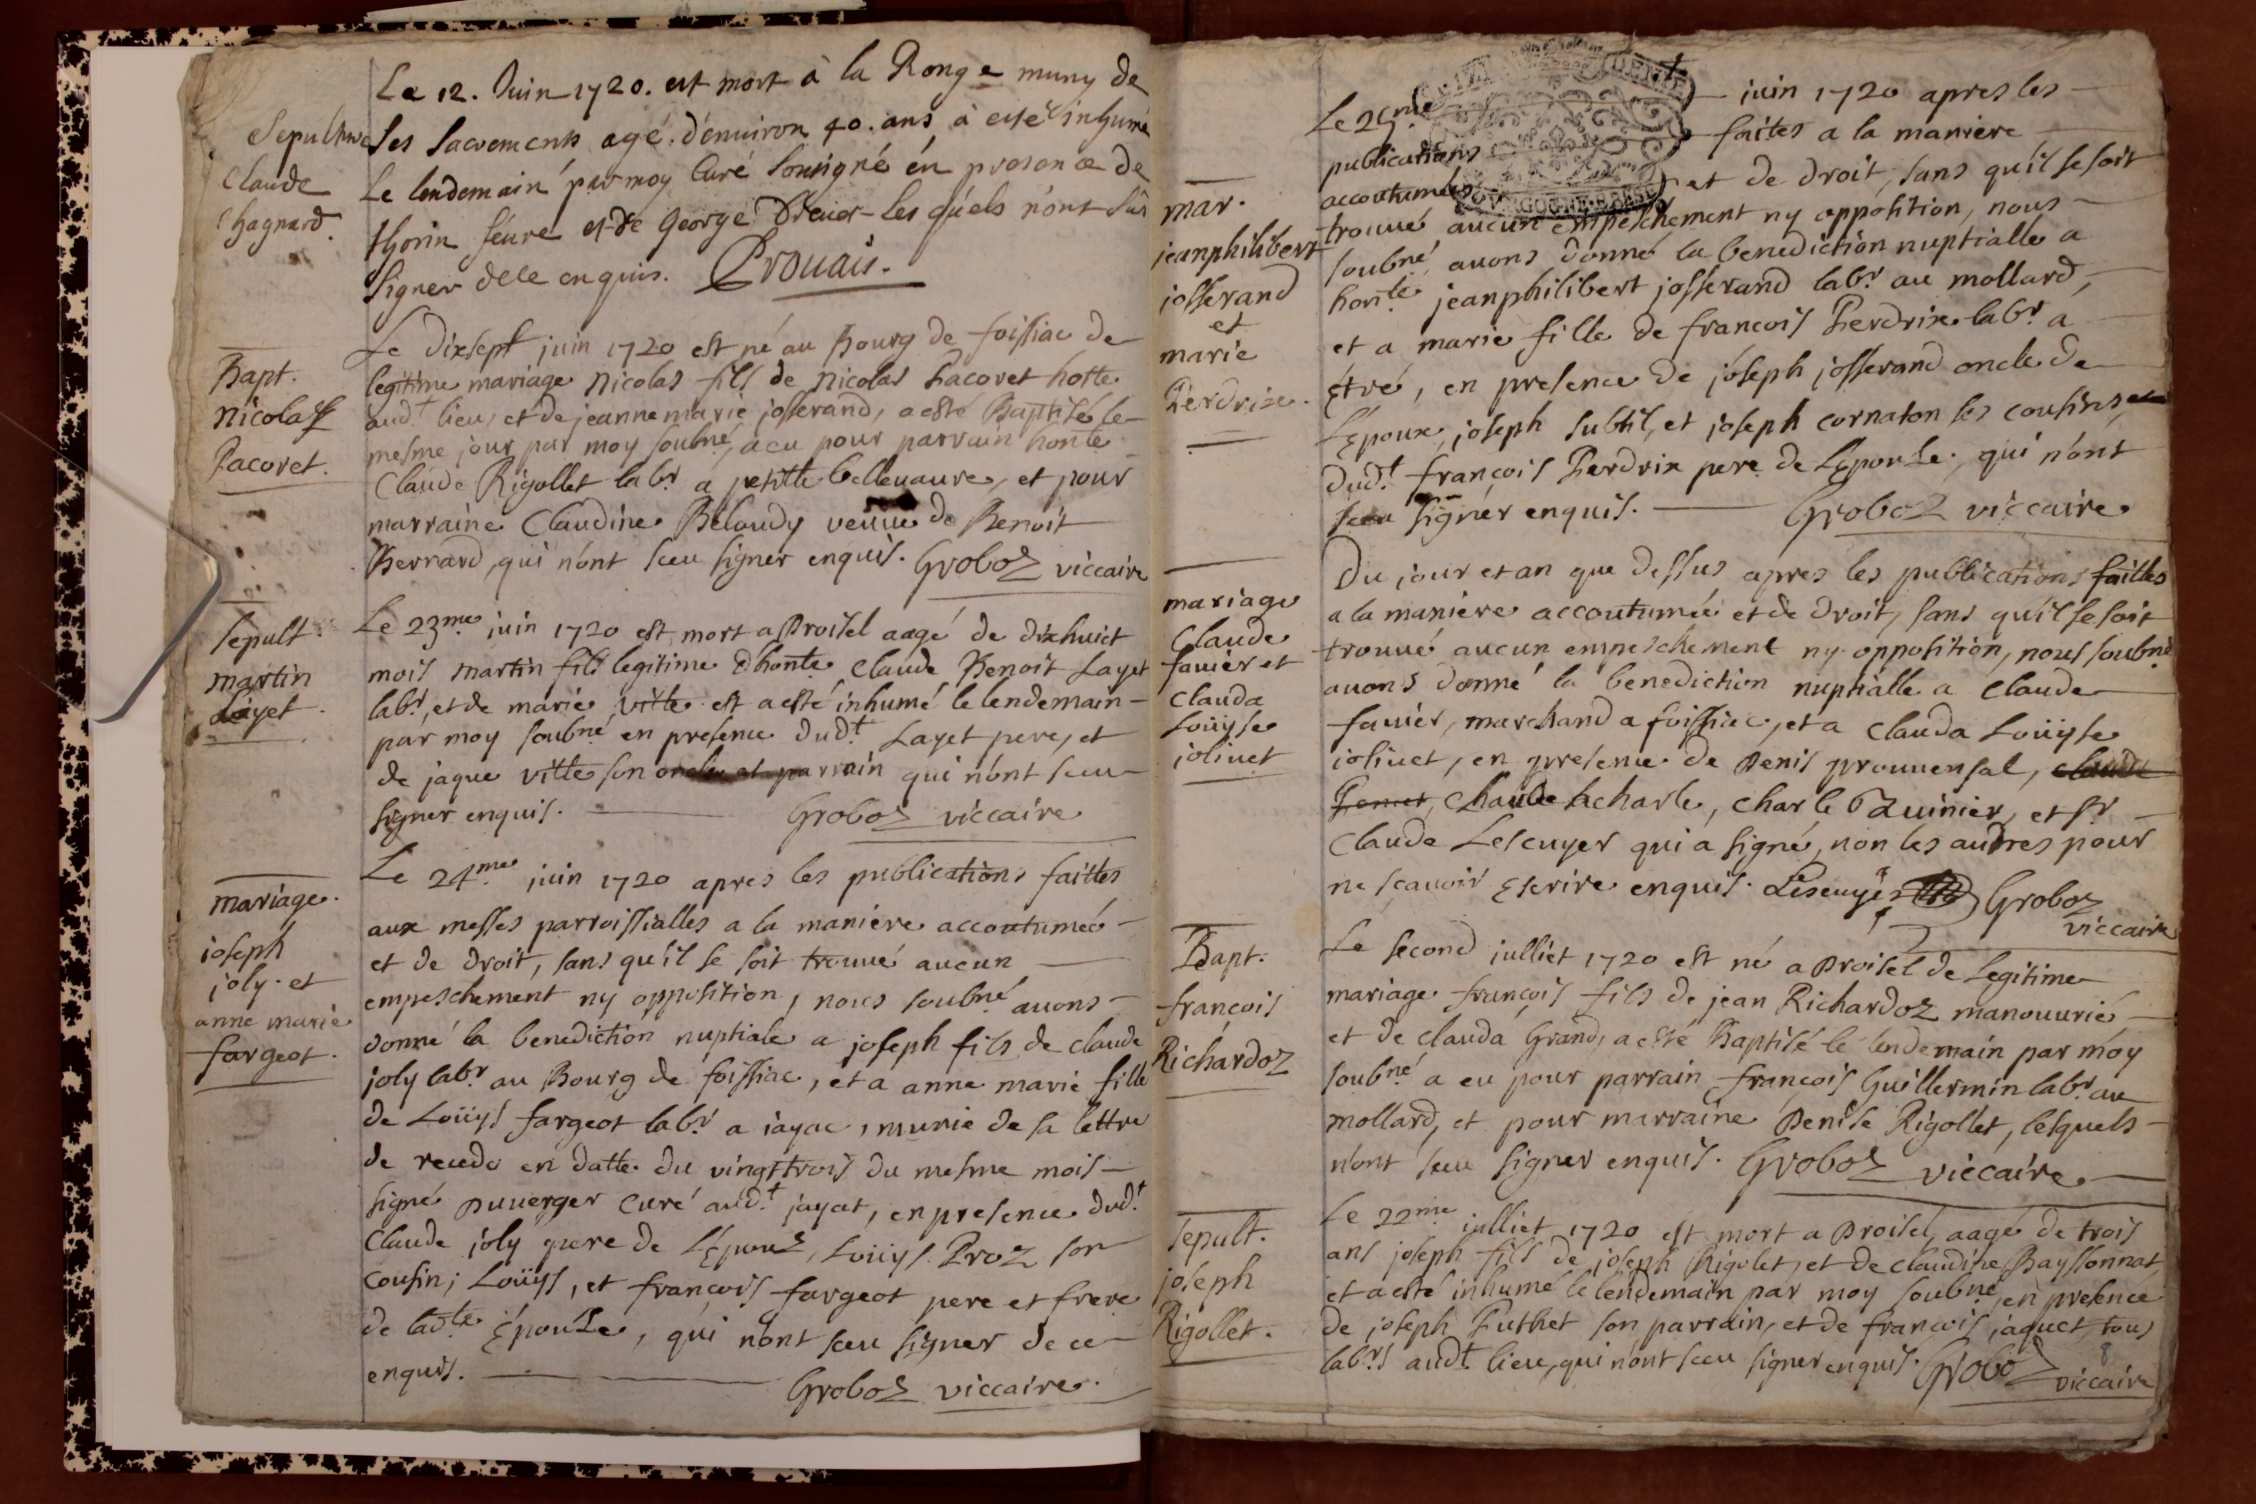 Sepulture
Claude
Chagnard.
Le 12. Juin 1720. est mort à la Ronge muny de
ses sacrements agé d'environ 40. ans à esté inhumé
Le lendemain par moy Curé sousigné en presence de
thorin feure et de George les quels n'ont sus
signer dece enquis. Prouais.
Bapt.
nicolas
Pacoret.
Le dixsept juin 1720 est né au Bourg de foissiac de
legitime mariage nicolas fils de nicolas Pacoret hoste
aud.t lieu, et de jeanne marie josserand, a esté Baptisé le
mesme jour par moy soubné, a eu pour parrain honte
Claude Rigollet labr a petitte bellevavre, et pour
marraine Claudine Beloudy veuve de Benoit
Bernard, qui n'ont sceu signer enquis. Groboz viccaire
sepult.
martin
Layet.
Le 23me. juin 1720 est mort a Droisel aagé de dixhuict
mois martin fils legitime d'honte. Claude Benoit Layet
labr, et de marie vitte est a esté inhumé le lendemain
par moy soubné en presence dud.t Layet pere, et
de jaque vitte son oncle et parrain qui n'ont sceu
signer enquis. Groboz viccaire
mariage.
joseph
joly. et
anne marie
fargeot.
Le 24.me juin 1720 apres les publications faittes
aux messes parroissialles a la maniere accoutumée
et de droit, sans qu'il se soit trouvé aucun
empeschement ny opposition, nous soubné avons
donné la benediction nuptiale a joseph fils de claude
joly labr au Bourg de foissiac, et a anne marie fille
de Loüys fargeot labr a jayac, munie de sa lettre
de recedo en datte du vingttrois du mesme mois
signé Duverger Curé aud.t jayat, en presence dud.t
Claude joly pere de l'Epoux, Loüys Proz son
Cousin; Loüys, et francois fargeot pere et frere
de ladte Epouse, qui n'ont sceu signer de ce
enquis. Groboz viccaire.
mar.
jeanphilibert
josserand
et
marie
Perdrix.
Le 25me juin 1720 apres les
publications faites a la maniere
accoutumées et de droit, sans qu'il se soit
trouvé aucun empeschement ny opposition, nous
soubné avons donné la benediction nuptialle a
honte. jeanphilibert josserand labr. au mollard,
et a marie fille de francois Perdrix labr a
Etré, en presence de joseph josserand oncle de
l'Epoux, joseph subtil, et joseph cornaton ses cousins
dud.t françois Perdrix pere de l'Epouse, qui n'ont
sceu signér enquis. Groboz viccaire.
mariage
Claude
favier et
Clauda
Loüyse
jolivet
Du jour et an que dessus apres les publications faittes
a la maniere accoutumée et de droit, sans qu'il se soit
trouvé aucun empeschement ny opposition, nous soubné
avons donné la benediction nuptialle a Claude
favier, marchand a foissiac, et a Clauda Loüyse
jolivet, en presence de Denis prouvensal, claude
Claude Lacharle, Charle Quinier, et Sr
Claude Lescuyer qui a signé, non les autres pour
ne sçavoir Escrire enquis. Lescuyer Groboz
viccaire
Bapt.
francois
Richardoz
Le second julliet 1720 est né a Droisel de Legitime
mariage françois fils de jean Richardoz manouvrié
et de clauda Grand, a esté Baptisé le lendemain par moy
soubné a eu pour parrain françois Guillermin labr. au
mollard, et pour marraine Denise Rigollet, lesquels
n'ont sceu signer enquis. Groboz viccaire.
sepult.
joseph
Rigollet.
Le 22me. julliet 1720 est mort a Droisel, aagé de trois
ans joseph fils de joseph Rigolet, et de claudine Bayssonnat
et a esté inhumé le lendemain par moy soubné, en presence
de joseph Puthet son parrain, et de françois jaquet, tous
labrs aud.t lieu, qui n'ont sceu signer enquis. Groboz
viccaire
8